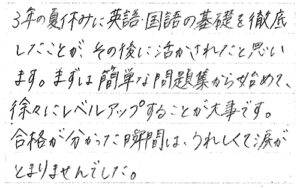 3年の夏休みに英語・国語の基礎を徹底
したことが、その後に活かされたと思い
ます。まずは簡単な問題集から始めて、
徐々にレベルアップすることが大事です。
合格が分かった瞬間は、うれしくて涙が
とまりませんでした。